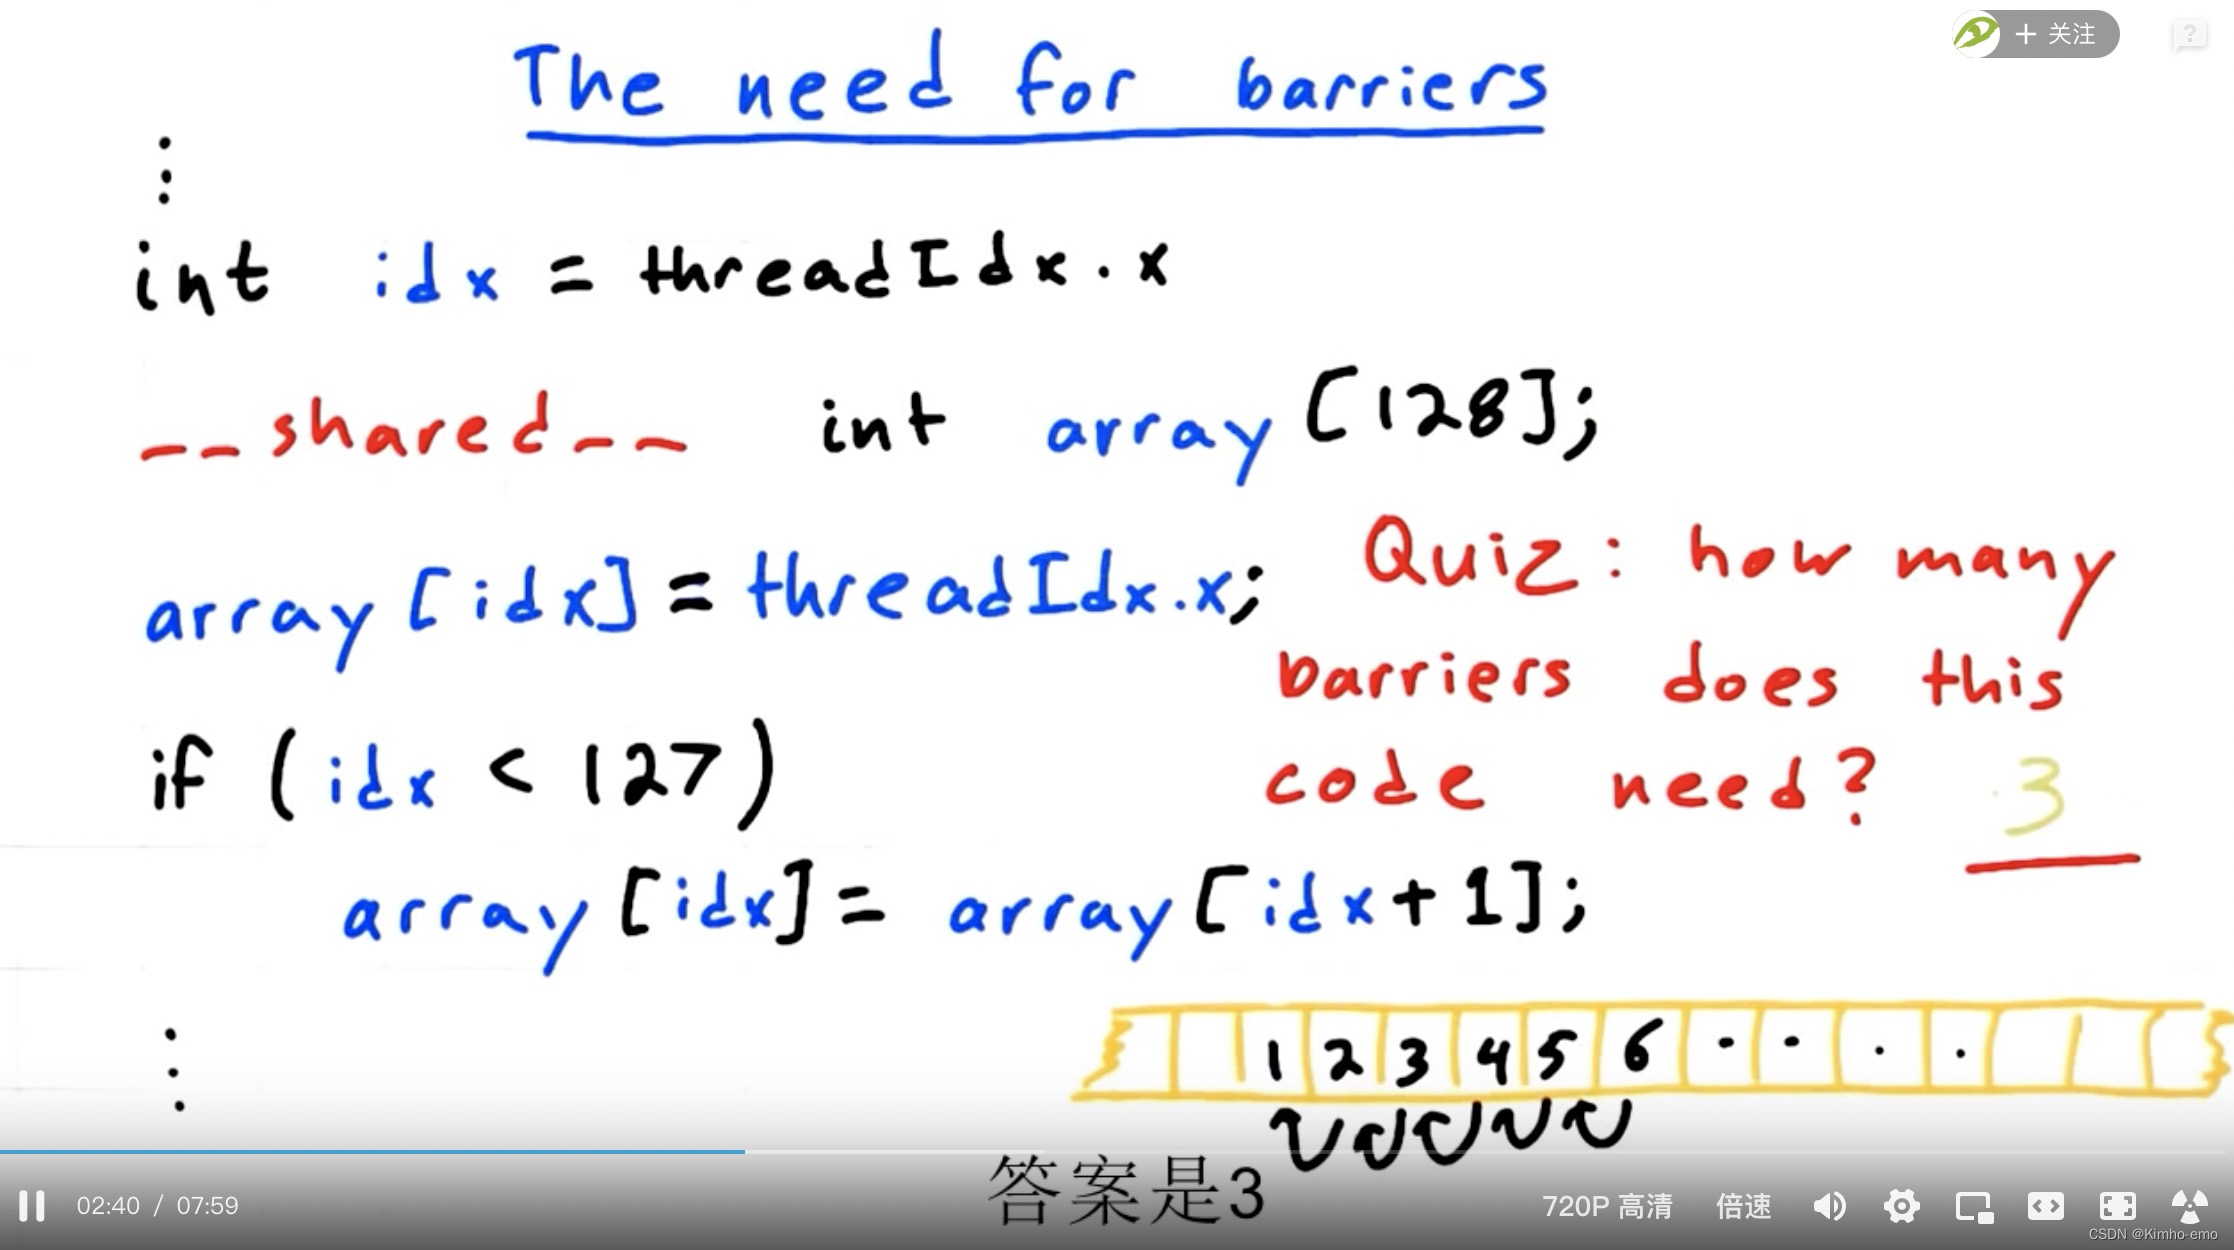 The need for barriers
+ 关注
int idx = threadIdx.x
__shared__ int array[128];
array[idx] = threadIdx.x;
Quiz: how many
barriers does this
code need? 3
if (idx < 127)
array[idx] = array[idx+1];
1 2 3 4 5 6 . . . .
答案是3
02:40 / 07:59
720P 高清
倍速
CSDN @Kimho-emo